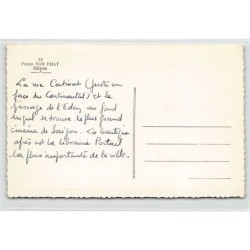 52
Photo NAM PHAT
Saigon
La rue Catinat (juste en
face du Continental) et le
passage de l'Eden, au fond
duquel se trouve le plus grand
cinéma de Saigon. La boutique
après est la librairie Portail
la plus importante de la ville.